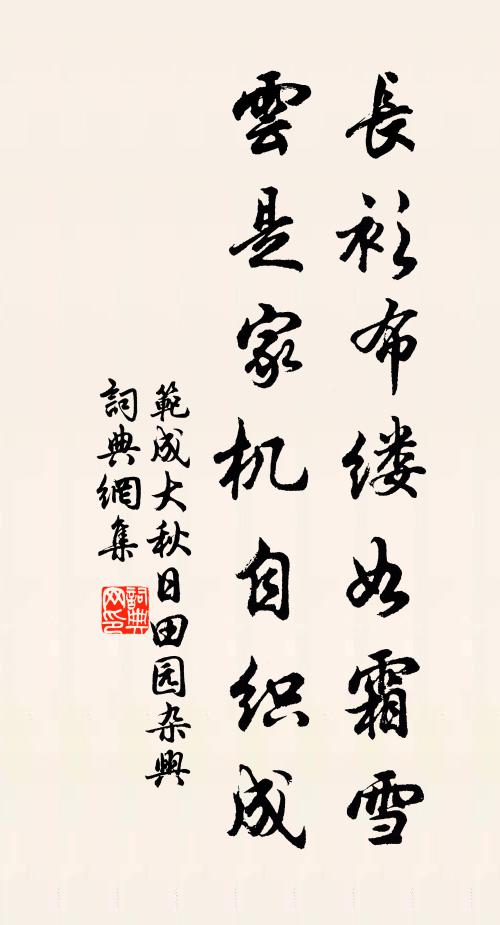 長衫布缕如霜雪
雲是家机自织成
範成大秋日田园杂興
詞典網集
詞典网印